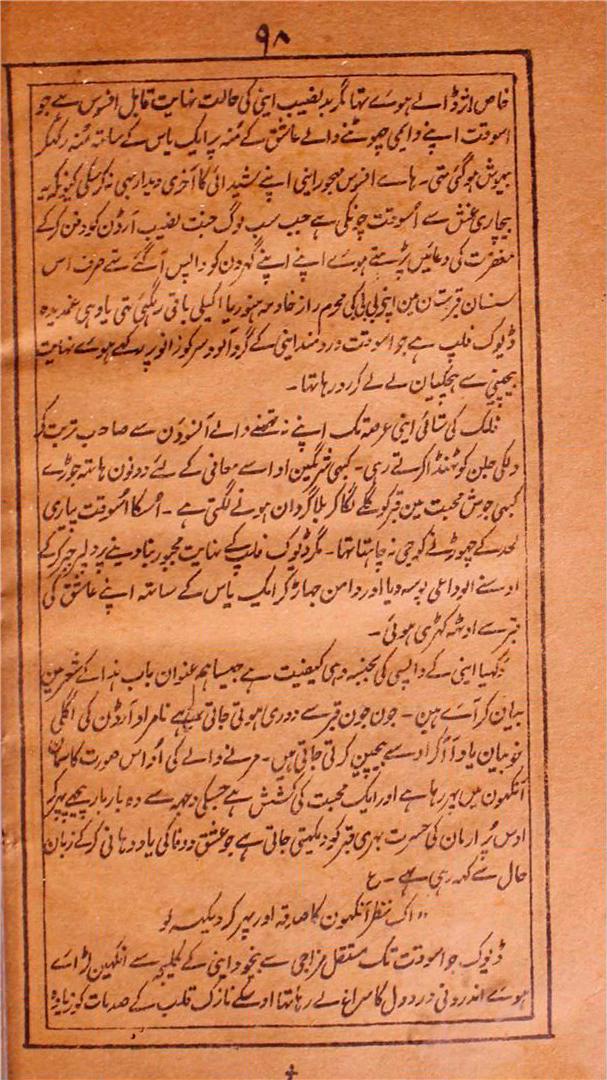 ۹۸
خاص اثر ڈالے ہوے تہا مگر بدنصیب اینی کی حالت نہایت قابل افسوس ہے جو
اسوقت اپنے دایمی چھوٹنے والے عاشق کے مُنہ پر ایک یاس کے ساتہ مُنہ رکھکر
بیہوش ہوگئی تہی۔ ہاے افسوس مہجور اینی اپنے شیدائی کا آخری دیدار بہی نہ کرسکی کیونکہ یہ
بیچاری غش سے اُسوقت چونکی ہے جب سب لوگ جنت نصیب آرڈن کو دفن کر کے
مغفرت کی دعائیں پڑہتے ہوے اپنے اپنے گہرون کو واپس آگئے تہے صرف اس
سنسان قبرستان مین اپنی بی بی کی محرم راز خادمہ اکیلی باقی رہگئی تہی یا وہی غمدیدہ
ڈیوک فلپ ہے جو اسوقت دردمند اینی کے گرد آلود سر کو زانو پر رکہے ہوے نہایت
بیچینی سے ہچکیان لے لے کر رو رہا تہا۔
فلک کی ستائی اینی عرصہ تک اپنے نہ تہمنے والے آنسوؤن سے صاحب تربت کے
دلکی جلن کو ٹہنڈا کرتے رہی۔ کبہی شرمگین ادا سے معافی کے لئے دونون ہاتہ جوڑے
کبہی جوش محبت مین قبر کو گلے لگا کر بلاگردان ہونے لگتی ہے۔ اُسکا اُسوقت پیاری
لحد کے چہوڑنے کو جی نہ چاہتا تہا۔ مگر ڈیوک فلپ کے نہایت مجبور بنا دینے پر دلپر جبر کر کے
اوسنے الوداعی بوسہ دیا اور دامن جہاڑ کر ایک یاس کے ساتہ اپنے عاشق کی
قبر سے اوٹہہ کہڑی ہوئی۔
دُکہیا اینی کے واپسی کی بجنسہ وہی کیفیت ہے جیسا ہم عنوان باب ہذا کے شعر مین
بیان کر آے ہین۔ جون جون قبر سے دوری ہوتی جاتی ہے نامراد آرڈن کی اگلی
خوبیان یاد آ آکر اوسے بیچین کرتی جاتی ہیں۔ مرنے والے کی اُداس صورت کا سمان
آنکہون میں پہر رہا ہے اور ایک محبت کی کشش ہے جسکی وجہہ سے وہ بار بار پیچہے پہر کر
اوس پُر ارمان کی حسرت بہری قبر کو دیکہتی جاتی ہے جو عشق و وفا کی یاد دہانی کر کے زبان
حال سے کہہ رہی ہے۔ ع
"اک نظر آنکہون کا صدقہ اور پہر کر دیکہہ لو
ڈیوک جو اسوقت تک مستقل مزاجی سے بیخود اینی کے کلیجہ سے انکہین لڑاے
ہوے اندرونی درد دل کا سراغ لے رہا تہا اوسکے نازک قلب کے صدمات کو زیادہ